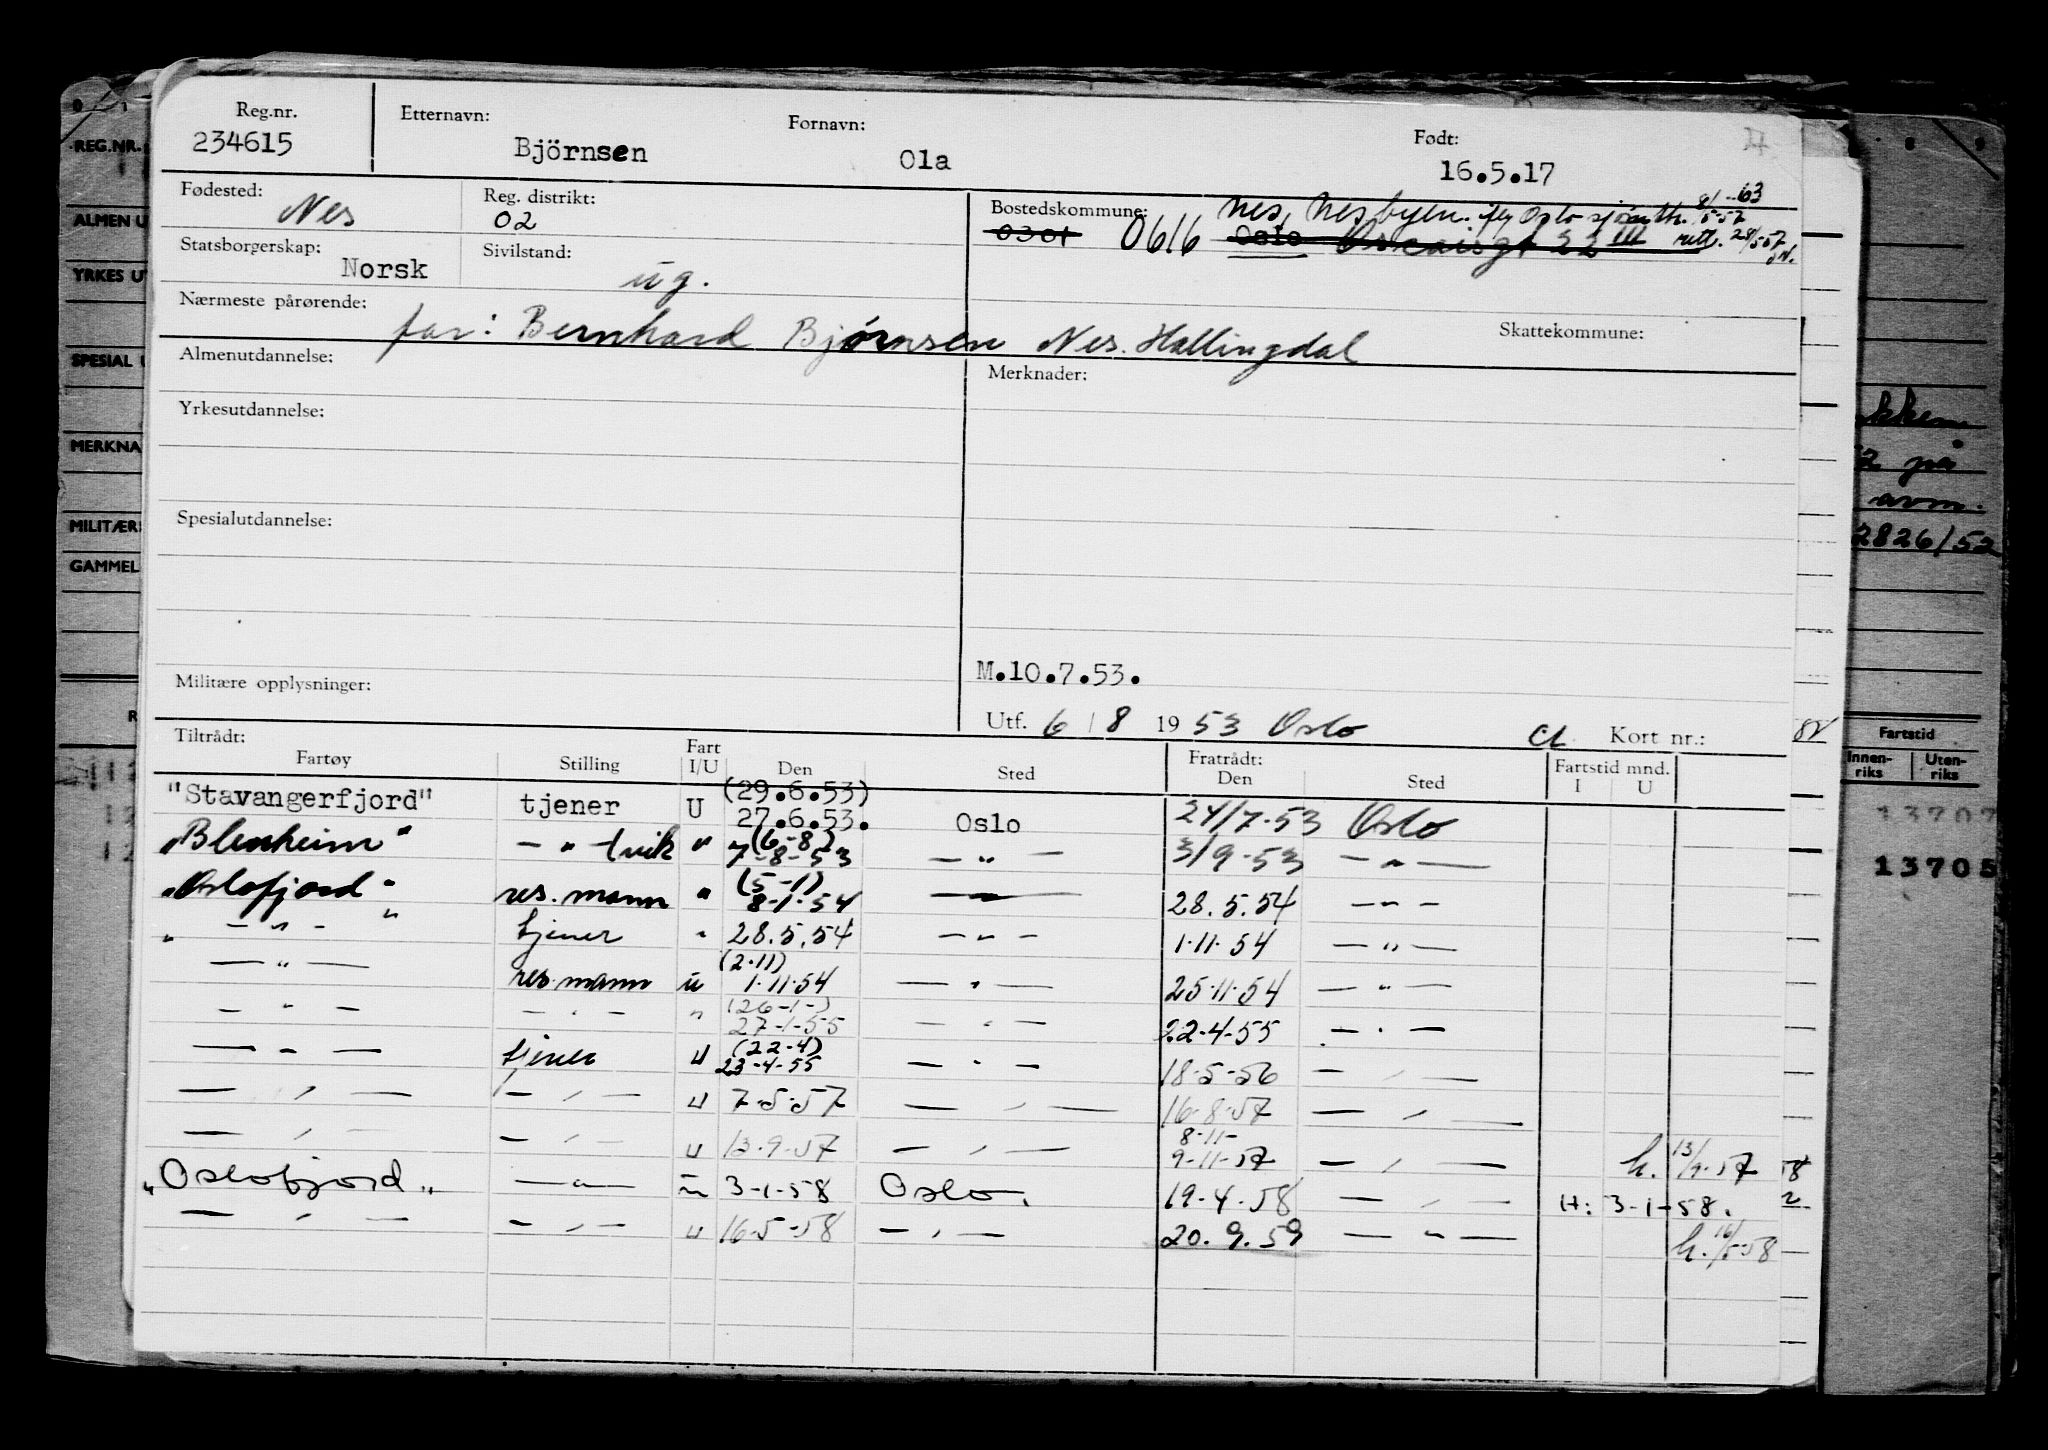 Reg.nr. Etternavn: Fornavn: Født:
234615 Björnsen Ola 16.5.17
Fødested: Nes Reg. distrikt: 02 Bostedskommune: 0301 0616 Nes, Nesbyen. 8/1-63
Oslo Oscarsgt 22 III rett. 28/5-57
Statsborgerskap: Norsk Sivilstand: ug.
Nærmeste pårørende: far: Bernhard Bjørnsen Nes. Hallingdal Skattekommune:
Almenutdannelse: Merknader:
Yrkesutdannelse:
Spesialutdannelse:
M.10.7.53.
Militære opplysninger:
Utf. 6/8 1953 Oslo Kort nr.:
Tiltrådt: Fratrådt: Fartstid mnd.
Fartøy Stilling Fart I/U Den Sted Den Sted I U
"Stavangerfjord" tjener U (29.6.53) 27.6.53. Oslo 24/7-53 Oslo
"Blenheim" — " — tvik " (6-8) 7-8-53 — " — 3/9-53 — " —
"Oslofjord" res. mann " (5-1) 8-1-54 — " — 28.5.54 — " —
" — " — " tjener " 28.5.54 — " — 1.11.54 — " —
— " — res. mann u (2.11) 1.11.54 — " — 25.11.54 — " —
— " — — " — " (26-1-) 27-1-55 — " — 22-4-55 — " —
— " — tjener u (22-4) 23-4-55 — " — 18-5-56 — " —
— " — — " — u 7-5-57 — " — 16-8-57 — " —
— " — — " — u 13-9-57 — " — 8-11- 9-11-57 — " — h. 13/9-57
"Oslofjord" — " — u 3-1-58 Oslo. 19-4-58 — " — H: 3-1-58.
— " — — " — u 16-5-58 — " — 20.9.59 — " — h. 16/5-58
REG.NR.
ALMEN U
YRKES U
SPESIAL
MERKNA
MILITÆR
GAMMEL
på
avm.
2826/52
Fartstid
Innen-riks Uten-riks
13707
13705